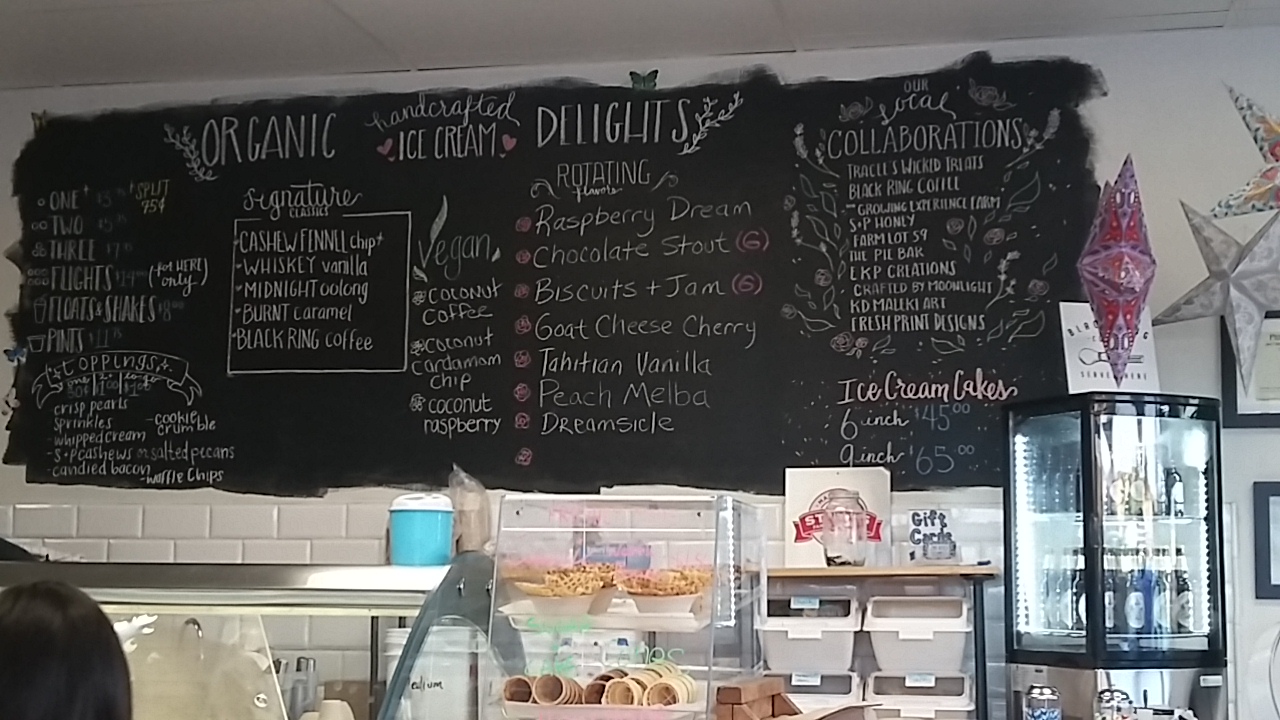 ORGANIC
handcrafted
ICE CREAM
DELIGHTS
ONE
+SPLIT
75¢
TWO
THREE
FLIGHTS (for HERE only)
FLOATS & SHAKES
PINTS
TOPPINGS
crisp pearls
sprinkles
-whipped cream
-S+P cashews or salted pecans
-candied bacon
-cookie crumble
-waffle chips
signature
CLASSICS
CASHEW FENNEL chip+
WHISKEY vanilla
MIDNIGHT oolong
BURNT caramel
BLACK RING coffee
Vegan
coconut
coffee
coconut
cardamom
chip
coconut
raspberry
ROTATING
flavors
Raspberry Dream
Chocolate Stout (G)
Biscuits + Jam (G)
Goat Cheese Cherry
Tahitian Vanilla
Peach Melba
Dreamsicle
OUR
local
COLLABORATIONS
TRACEE'S WICKED TREATS
BLACK RING COFFEE
GROWING EXPERIENCE FARM
S+P HONEY
FARM LOT 59
THE PIE BAR
EKP CREATIONS
CRAFTED BY MOONLIGHT
KD MALEKI ART
FRESH PRINT DESIGNS
Ice Cream Cakes
6 inch $45⁰⁰
9 inch $65⁰⁰
Gift
Cards